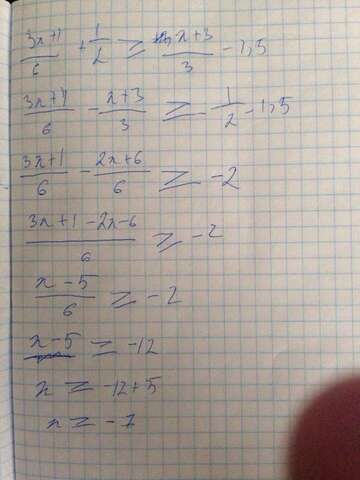 (3x+1)/6 + 1/2 ≥ (x+3)/3 - 1,5
(3x+1)/6 - (x+3)/3 ≥ -1/2 - 1,5
(3x+1)/6 - (2x+6)/6 ≥ -2
(3x+1-2x-6)/6 ≥ -2
(x-5)/6 ≥ -2
x-5 ≥ -12
x ≥ -12+5
x ≥ -7